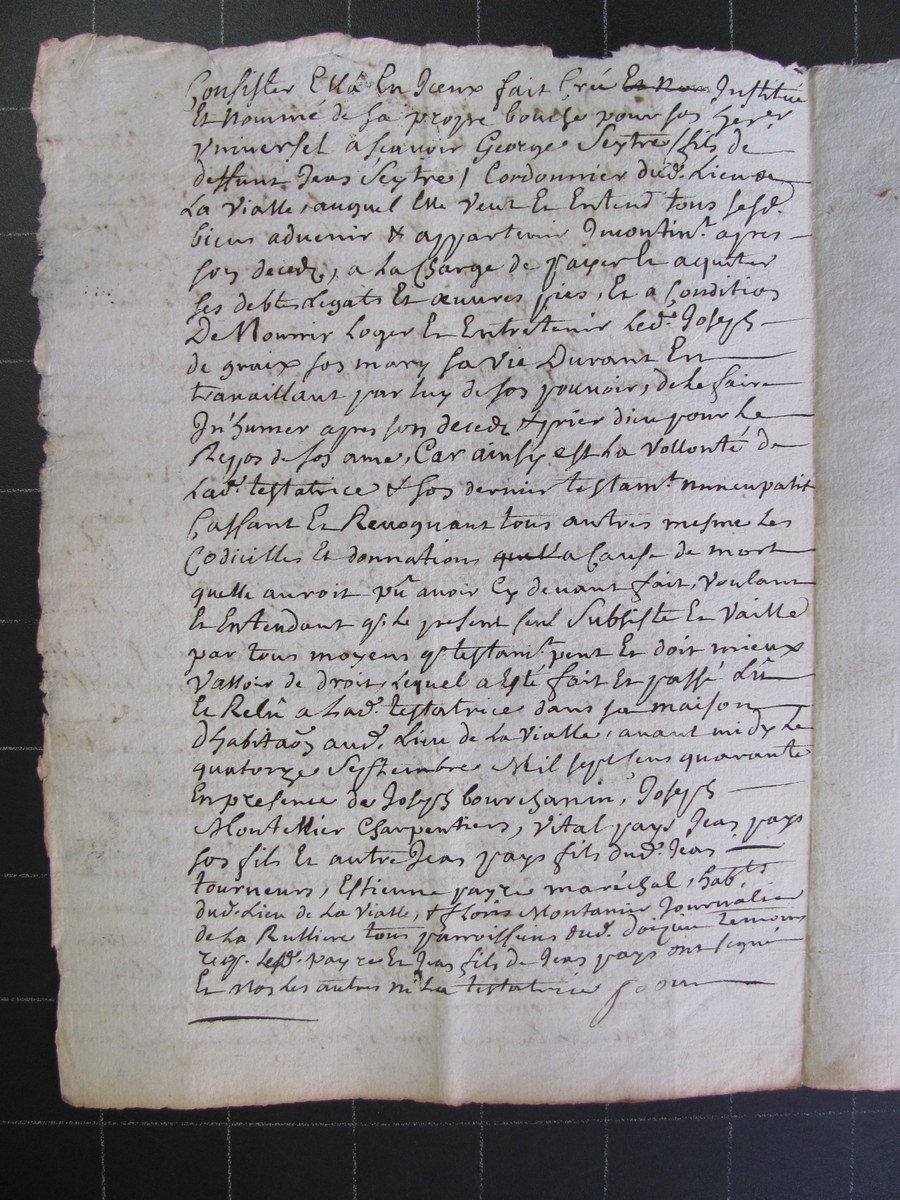 Consister Ella En Iceux fait Créé Et Nom Institué
Et nommé de sa propre bouche pour son herer
Vniversel ascavoir George Seytre / fils de
deffunt Jean Seytre / Cordonnier dud. Lieu de
La Vialle, auquel Elle Veut Et Entend tous sesd.
biens advenir & appartenir Incontint. apres
son decedz, a La Charge de payer Et aquiter
ses debtes Legats Et œuvres pies, Et a Condition
De Nourrir Loger Et Entretenir Led. Joseph
de graix son mary sa vie Durant En
travaillant par luy de son pouvoir, de le faire
In'humer apres son decedz & prier dieu pour Le
Repos de son ame, Car ainsy est La Vollonté de
Lad. testatrice & son dernier testamt. nuncupatif
Cassant Et Revoquant tous autres mesme Les
Codicilles Et donnations quell a Cause de mort
quelle auroit pû avoir Cy devant fait, Voulant
Et Entendant q. Le present seul Subsiste Et Vaille
par tous moyens q. testamt. peut Et doit mieux
Valloir de droit, Lequel a Esté fait Et passé Lû
Et Relû a Lad. testatrice dans sa maison
dhabitaõn aud. Lieu de La Vialle, avant midy Le
quatorze Septembre Mil sept sens quarante
En presence de Joseph bourchanin, Joseph
Montellier Charpentiers, Vital pays Jean pays
son fils Et autre Jean pays fils dud. Jean
tourneurs, Estienne payre maréchal, habts.
dud. Lieu de La Vialle, & floris Montanier Journalier
de La Rulliere tous parroissiens dud. temoins
req. Led. payre Et Jean fils de Jean pays ont signé
Et non Les autres ni La testatrice